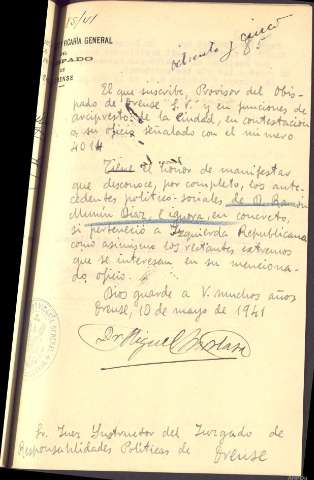 15/VI
SECRETARÍA GENERAL
DEL
OBISPADO
DE
ORENSE
ochenta y cinco
85
El que suscribe, Provisor del Obis-
pado de Orense S. V. y en funciones de
arcipreste de la Ciudad, en contestación
a su oficio señalado con el número
4014
Tiene el honor de manifestar
que desconoce, por completo, los ante-
cedentes político-sociales de D. Ramón
Munin Diaz, e ignora, en concreto,
si perteneció a Izquierda Republicana
como asimismo los restantes extremos
que se interesan en su menciona-
do oficio.
Dios guarde a V. muchos años
Orense, 10 de mayo de 1941
Dr. Miguel
Sr. Juez Instructor del Juzgado de
Responsabilidades Políticas de Orense